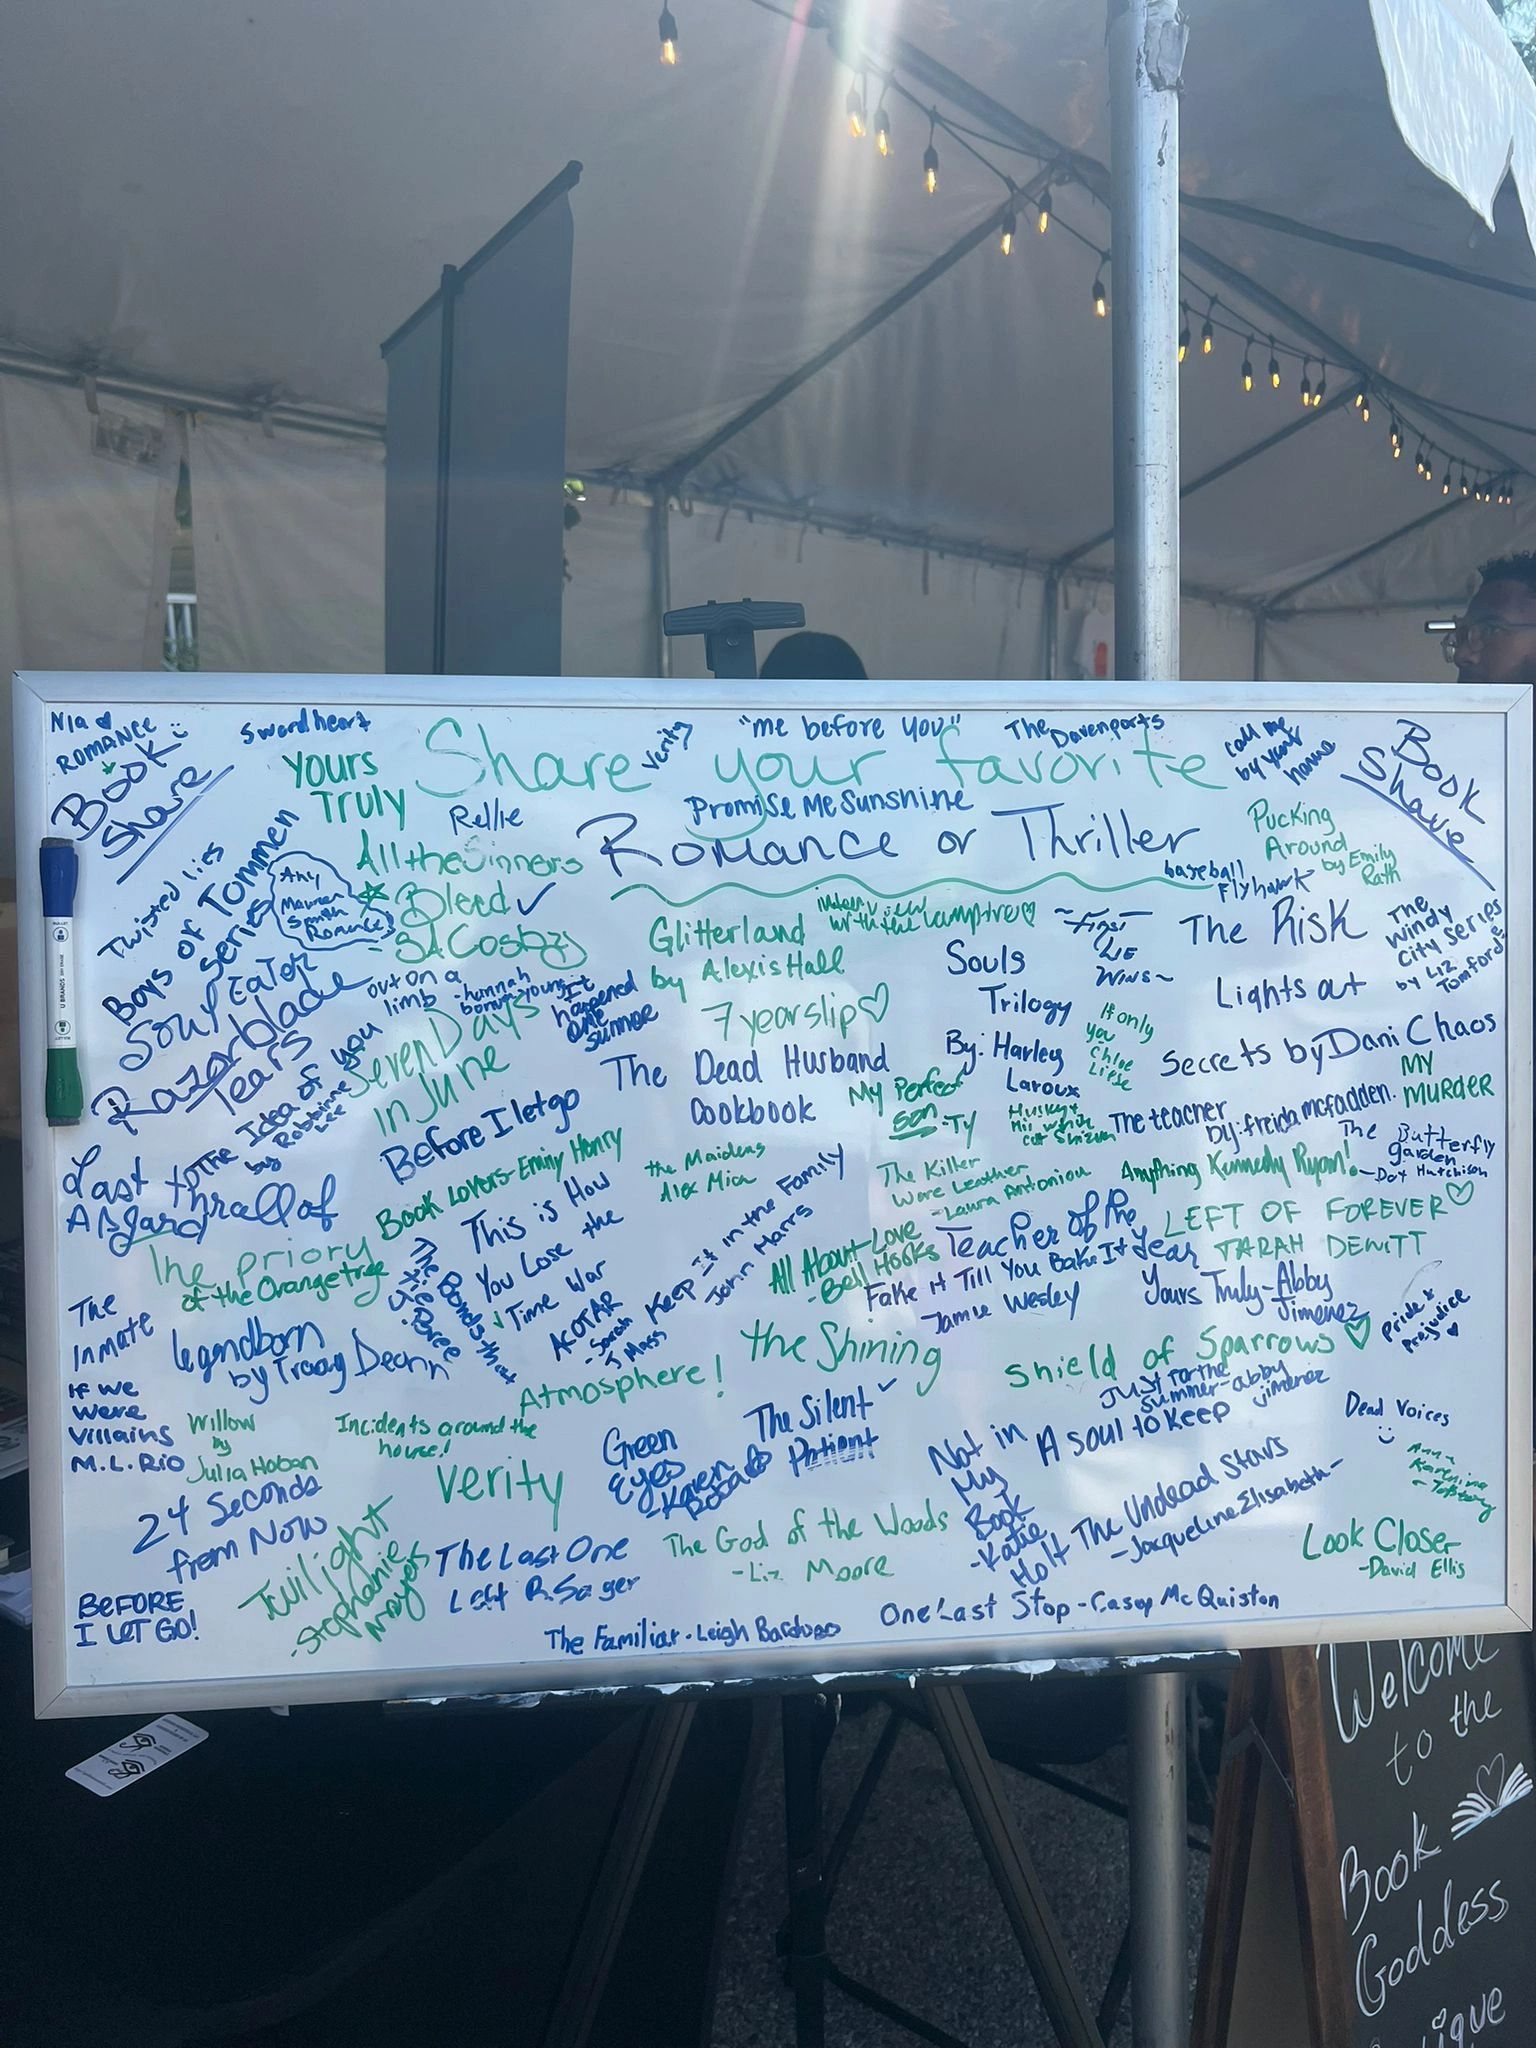 Nia
ROMANCE
Book
Share
Swordheart
Yours
Truly
Share your favorite
Verity
"me before you"
The Davenports
call me
by your
name
Book
Share
Promise Me Sunshine
Romance or Thriller
Rellie
All the Sinners
Bleed ✓
- SA Cosby
Pucking
Around
by Emily
Rath
baseball
Flyhawk
Twisted lies
Boys of Tommen
Series
Any
Romance
Soul Eater
Razorblade
Tears
out on a
limb - hannah
bonam-young
It
happened
one
summer
Glitterland
by Alexis Hall
interview
with the vampire ♡
~ First
Lie
Wins ~
The Risk
The
Windy
City series
by Liz
Tomforde
Seven Days
in June
7 year slip ♡
Souls
Trilogy
By: Harley
Laroux
If only
you
Chloe
Liese
Lights out
Secrets by Dani Chaos
MY
MURDER
The Idea of you
by Robinne
Lee
The Dead Husband
Cookbook
My Perfect
Son - Ty
Husky +
His white
cat Shizun
The teacher
by: freida mcfadden.
The Butterfly
garden
- Dot Hutchison
Last to
Thrall of
Before I let go
Book Lovers - Emily Henry
the Maidens
Alex Mic
The Killer
Wore Leather
- Laura Antoniou
Anything Kennedy Ryan!
The priory
of the Orange tree
This is How
You Lose the
Time War
Keep It in the Family
John Marrs
All About Love
- Bell Hooks
Teacher Of the
Year
LEFT OF FOREVER ♡
TARAH DEWITT
Fake It Till You Bake It
Jamie Wesley
Yours Truly - Abby
Jimenez
Pride &
Prejudice
The
Inmate
Legendborn
by Tracy Deonn
The Bonds that
Tie
ACOTAR
- Sarah
J Mass
Atmosphere!
the Shining
Shield of Sparrows ♡
Just for the
Summer - abby
jimenez
If we
were
villains
M.L. Rio
Willow
by
Julia Hoban
Incidents around the
house!
Verity
Green
Eyes
- Karen
The Silent ✓
Patient
Not in
My
Book
- Katie
Holt
A soul to keep
Dead Voices
Anna
Karenina
- Tolstoy
The Undead Stars
- Jacqueline Elisabeth -
24 Seconds
from Now
Twilight
- Stephanie
Meyer
The Last One
Left R. Sager
The God of the Woods
- Liz Moore
Look Closer
- David Ellis
BEFORE
I LET GO!
The Familiar - Leigh Bardugo
One Last Stop - Casey McQuiston
Welcome
to the
Book
Goddess